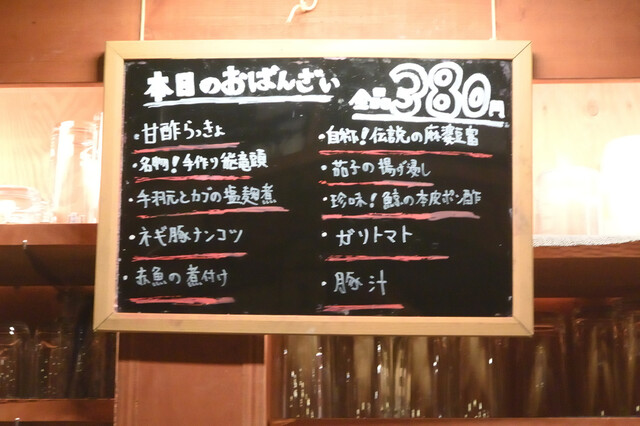 本日のおばんざい
全品380円
・甘酢らっきょ
・名物!手作り飛竜頭
・手羽元とカブの塩麹煮
・ネギ豚ナンコツ
・赤魚の煮付け
・自称!伝説の麻婆豆富
・茄子の揚げ浸し
・珍味!鯨の本皮ポン酢
・ガリトマト
・豚汁